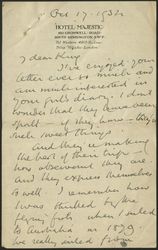 Oct 17. 1932
HOTEL MAJESTIC
160 CROMWELL ROAD
SOUTH KENSINGTON. S.W.5
I've enjoyed your
letter ever so much and
am much interested in
your girls diary. I don't
wonder that they have been
spoilt - if they have - they're
such sweet things
And they're making
the best of their trip -
how observant they are
and they express themselves
so well. I remember how
I was struck by the
flying fish when I sailed
to Australia in 1879
We really sailed from